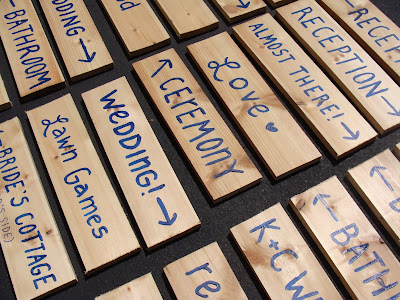 ← BATHROOM
WEDDING →
RECEPTION
← BRIDE'S COTTAGE
Lawn Games
WEDDING! →
← CEREMONY
Love ♥
ALMOST THERE! →
RECEPTION →
re
K+C W
← BATH